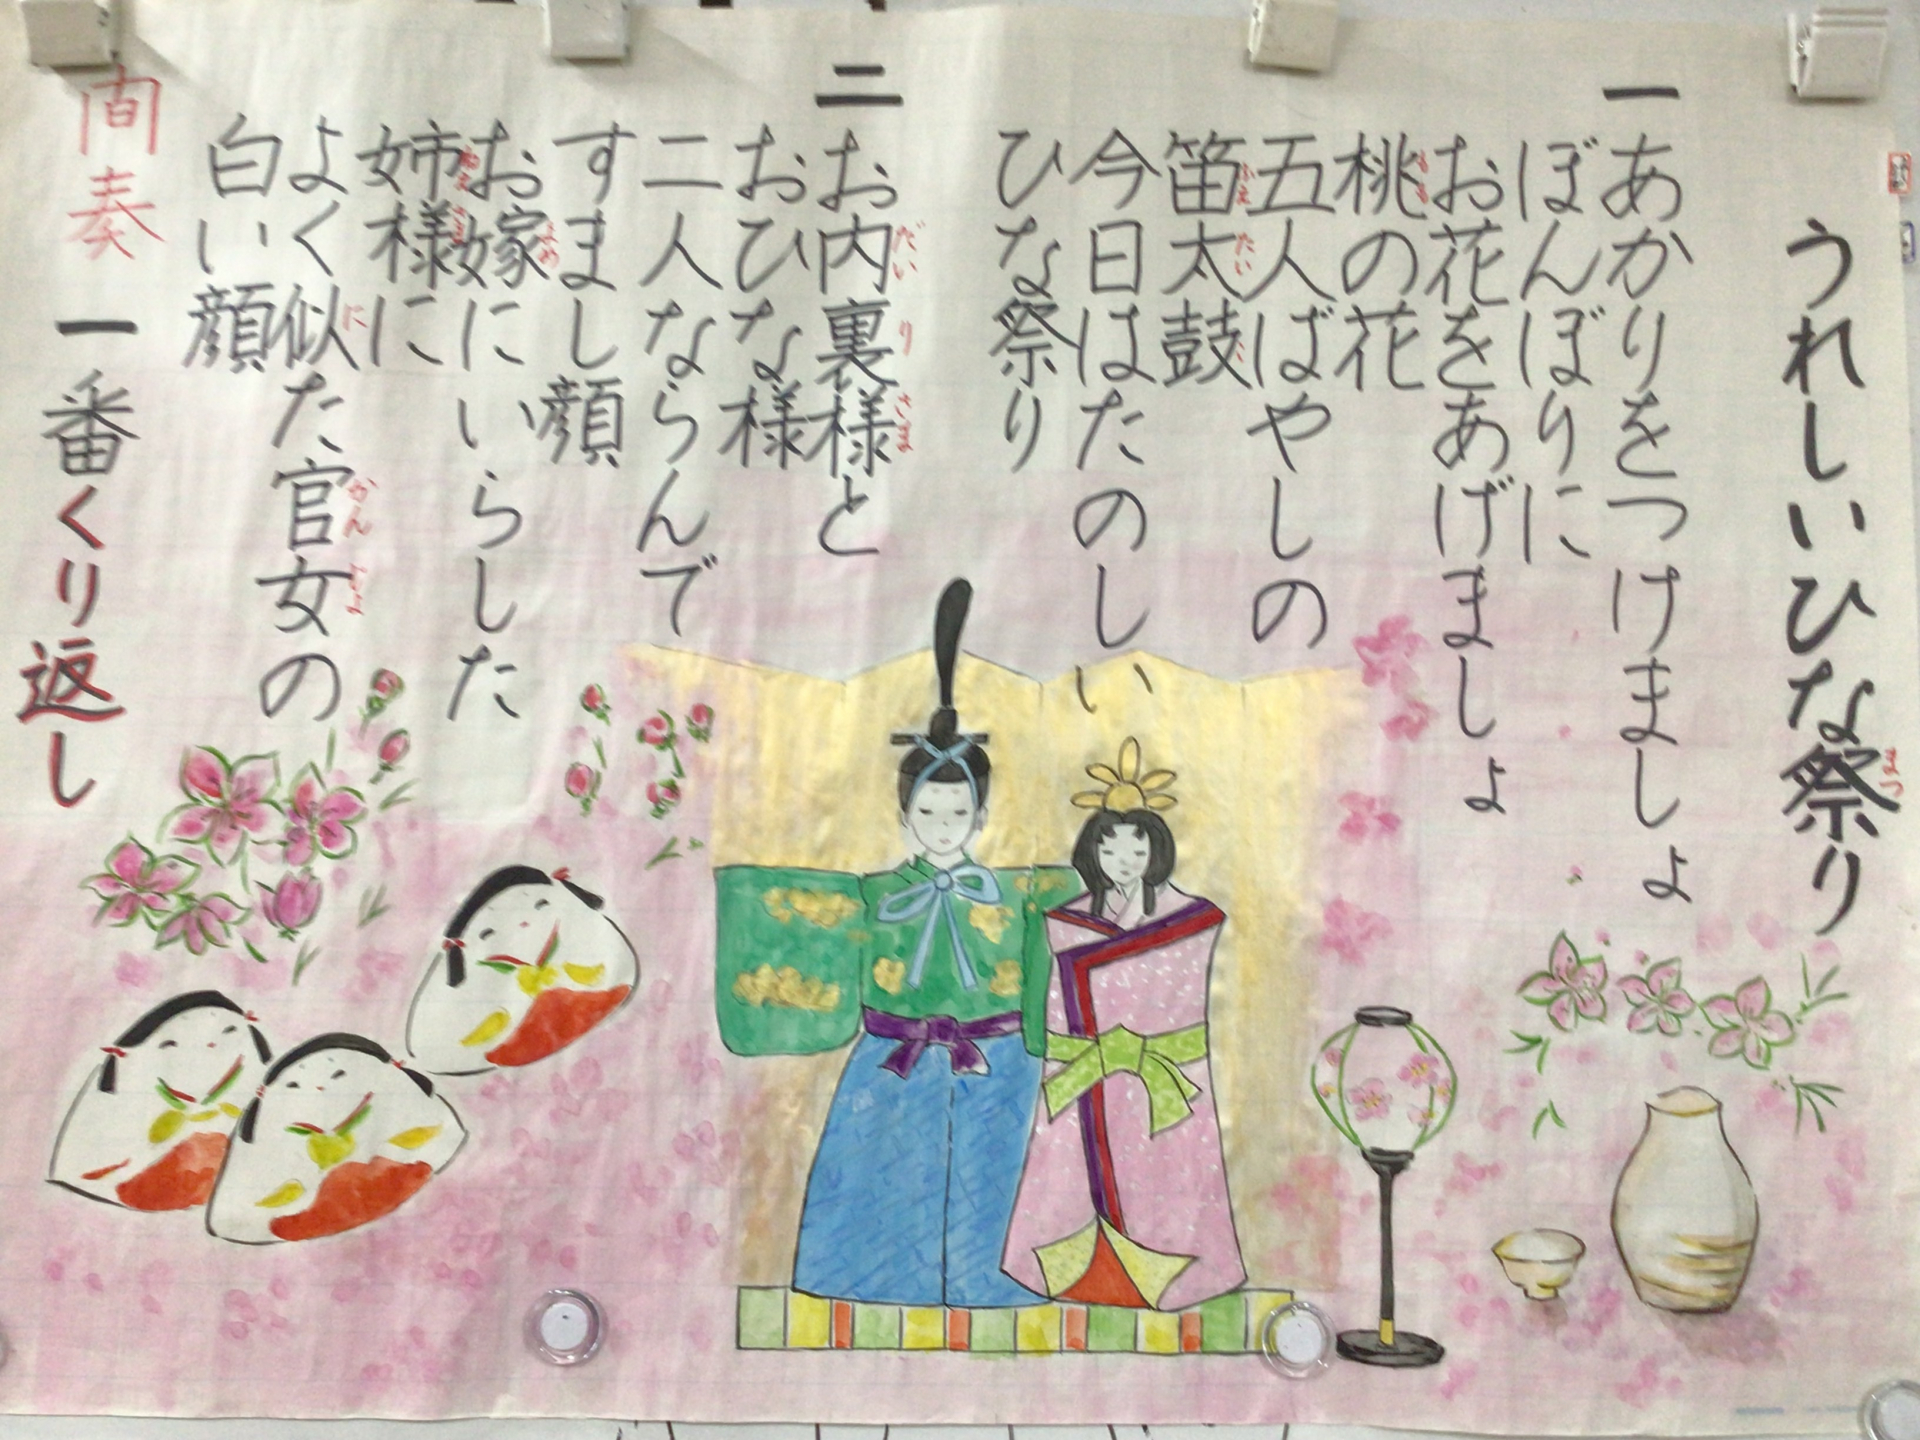 うれしいひな祭り
一 あかりをつけましょ
ぼんぼりに
お花をあげましょ
桃の花
五人ばやしの
笛太鼓
今日はたのしい
ひな祭り
二 お内裏様と
おひな様
二人ならんで
すまし顔
お嫁にいらした
姉様に
よく似た官女の
白い顔
間奏 一番くり返し